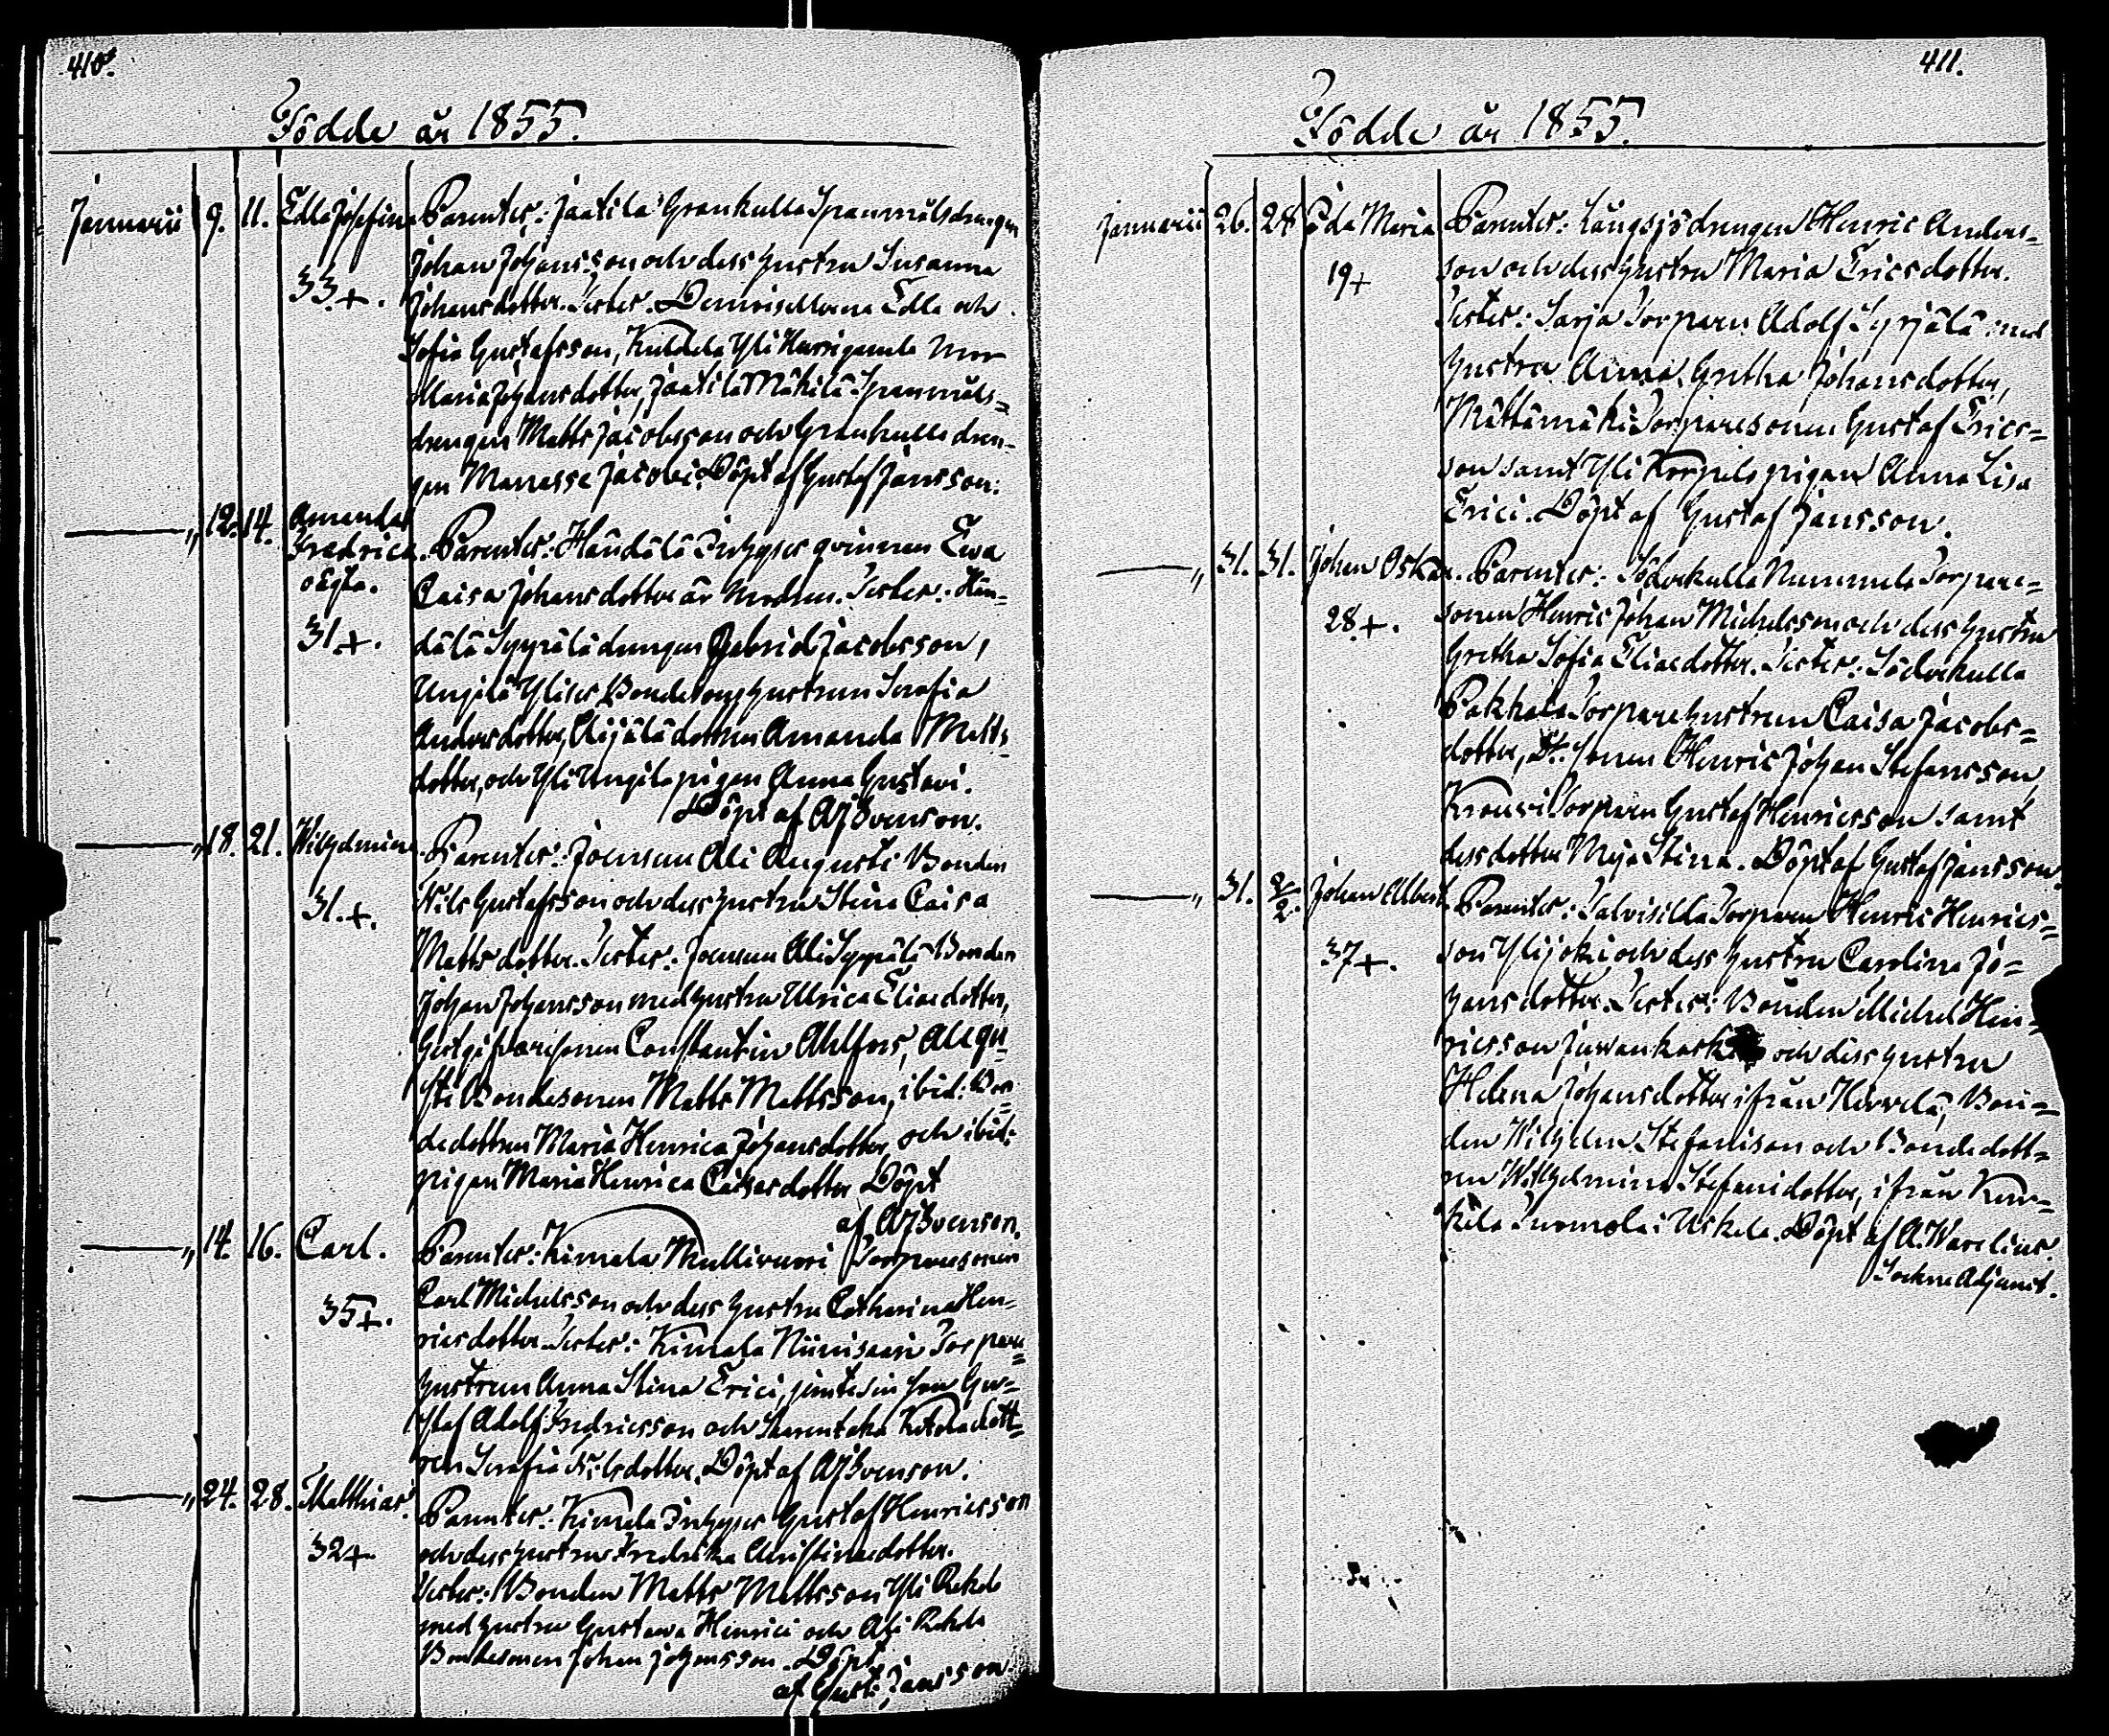 410.
Födde år 1855.
Januarii 9. 11. Edla Josefina Parentes: Jaatila Grankulla Spanmålsdrengen
Johan Johansson och dess hustru Susanna
33+. Johansdotter. Testes: Demoisellerna Edla och
Sofia Gustafsson, Kuldela Yli Hurri gamla Mor
Maria Johansdotter, Jaatila Mäkilä Spanmåls=
drengen Matts Jacobsson och Grankulla dren-
gen Manasse Jacobi. Döpt af Gustaf Jansson.
—„ 12. 14. Amanda
Fredrica Parentes: Händälä Inhyses qvinnan Ewa
oägta. Caisa Johansdotter är Modren. Testes: Hän=
31.+. dälä Syppälä drengen Gabriel Jacobsson,
Bondesons hustrun Serafia
Andersdotter, Äijälä dottren Amanda Matts
dotter, och Yli pigan Anna Gustavi.
Döpt af AJSvenson.
—„ 18. 21. Wilhelmina Parentes: Joensuu Ali Augusti Bonden
31.+. Nils Gustafsson och dess hustru Stina Caisa
Mattsdotter. Testes: Joensuu Ali Syppälä Bonden
Johan Johansson med hustru Ulrica Eliaedotter,
Gestgifvaresonen Constantin Ahlfors, Ali gu=
sti Bondesonen Matts Mattsson, ibid: Bon=
dedottren Maria Henrica Johansdotter, och ibid:
pigan Maria Henrica Caisasdotter Döpt
af AJSvenson.
—„ 14. 16. Carl. Parentes: Kimala Mullivuori Torparesonen
Carl Michelsson och dess hustru Catharina Hen=
35+. ricsdotter. Testes: Kimala Niinisaari Torpare
hustrun Anna Stina Erici, jemte sin son Gu=
staf Adolf Fredricsson och dott=
ren Serafia Nilsdotter. Döpt af AJSvenson.
—„ 24. 28. Matthias. Parentes: Kimala Inhyses Gustaf Henricsson
32+. och dess hustru Fredrika Christinaedotter.
Testes: Bonden Matts Mattsson Yli Rekola
med hustru Gustava Henrici och Ali Rekola
Bondesonen Johan Johansson. Döpt
af Gust: Jansson.
411.
Födde år 1855.
Januarii 26. 28 Ida Maria Parentes: Långsjö drengen Henric Anders=
19+ son och dess hustru Maria Ericsdotter.
Testes: Sarja Torparen Adolf Syrjälä med
hustru Anna Gretha Johansdotter,
Mättämäki Torparesonen Gustaf Erics=
son samt Yli Korpela pigan Anna Lisa
Erici. Döpt af Gustaf Jansson.
—„ 31. 31. Johan Oskar. Parentes: Söderkulla Nummela Torpare=
28.+. sonen Henric Johan Michelsson och dess hustru
Gretha Sofia Eliaedotter. Testes: Söderkulla
Pakkala Torparehustrun Caisa Jacobs=
dotter, D:o sonen Henric Johan Stefansson,
Krouvi Torparen Gustaf Henricsson samt
dess dotter Maja Stina. Döpt af Gustaf Jansson.
—„ 31. 2/2. Johan Albert. Parentes: Talvisilla Torparen Henric Henrics=
37+. son Ylijoki och dess hustru Carolina Jo=
hansdotter. Testes: Bonden Michel Hen=
ricsson och dess hustru
Helena Johansdotter ifrån Hirvelä, Bon=
den Wilhelm Stefanison och Bondedott=
ren Wilhelmina Stefanidotter, ifrån
i Uskela. Döpt af A. Warelius.
Sockne Adjunct.